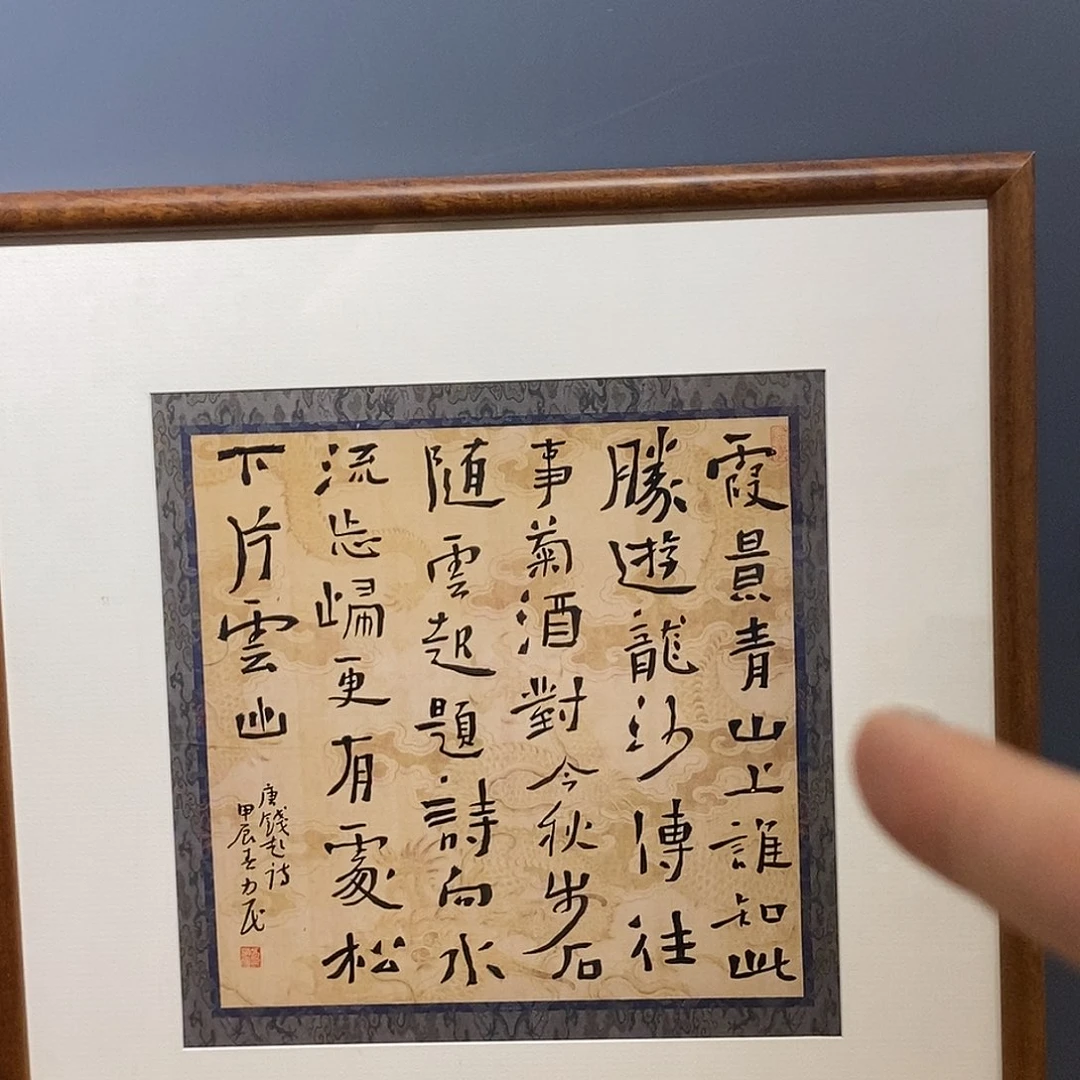 霞景青山上誰知此
勝遊龍沙傳往
事菊酒對今秋步石
随雲起題詩向水
流忘歸更有處松
下片雲幽
唐錢起詩
甲辰春力民